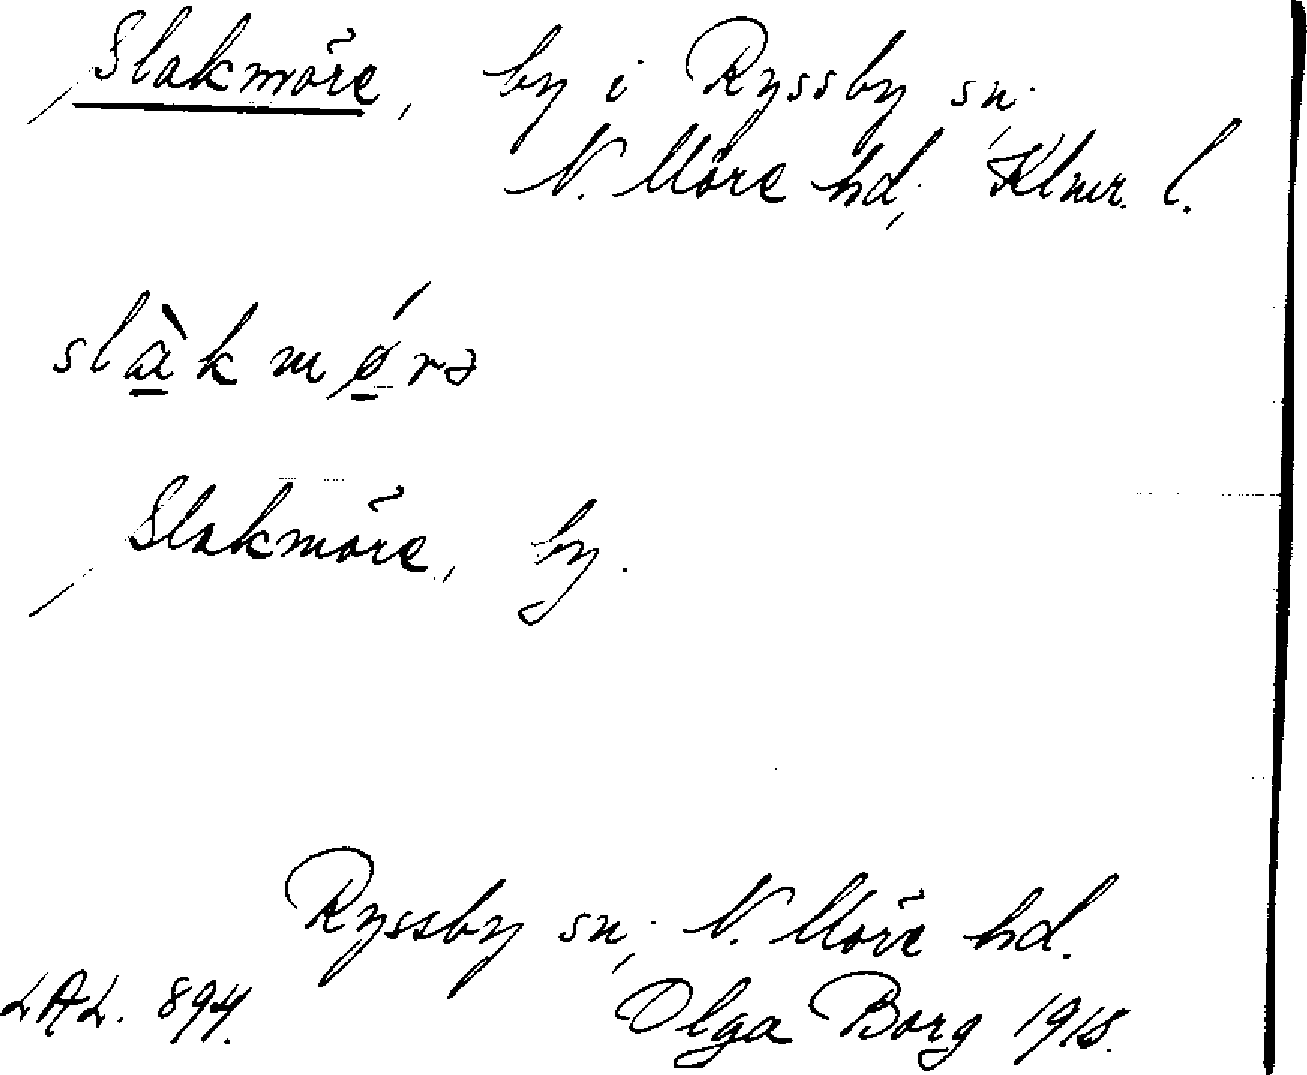 Slakmöre, by i Ryssby sn.
N. Möre hd, Klmr. l.
slàkmǿrə
Slakmöre, by.
Ryssby sn, N. Möre hd.
LAL. 894. Olga Borg 1918.